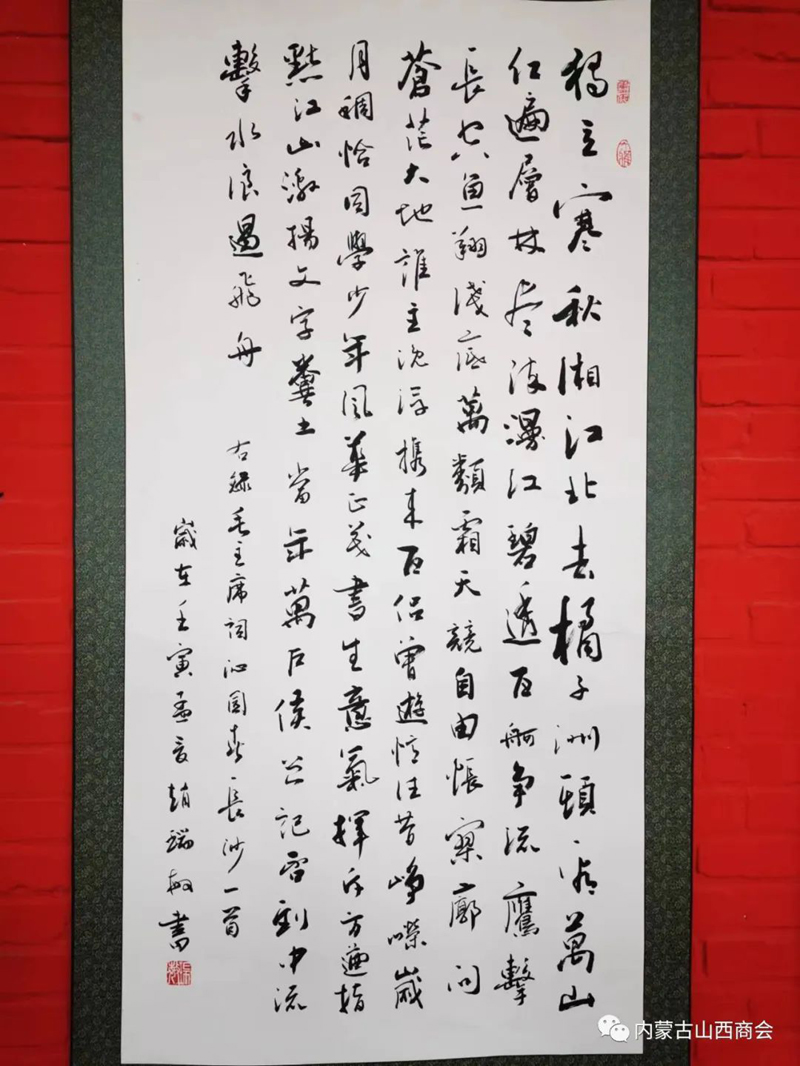 獨立寒秋湘江北去橘子洲頭看萬山
紅遍層林盡染漫江碧透百舸争流鷹擊
長空魚翔淺底萬類霜天競自由悵寥廓問
蒼茫大地誰主沉浮攜來百侣曾遊憶往昔崢嶸歲
月稠恰同學少年風華正茂書生意氣揮斥方遒指
點江山激揚文字糞土當年萬户侯曾記否到中流
擊水浪遏飛舟
右録毛主席詞沁園春長沙一首
歲在壬寅孟夏趙瑞敏書
内蒙古山西商会